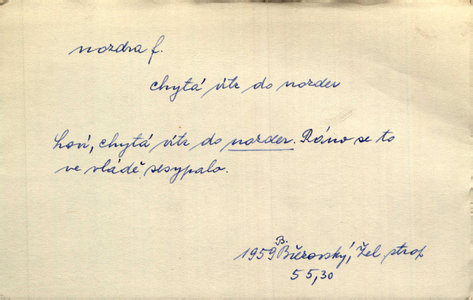 nozdra f.
chytá vítr do nozder
Loví, chytá vítr do nozder. Ráno se to
ve vládě sesypalo.
1959 B. Březovský, Žel. strop
55,30